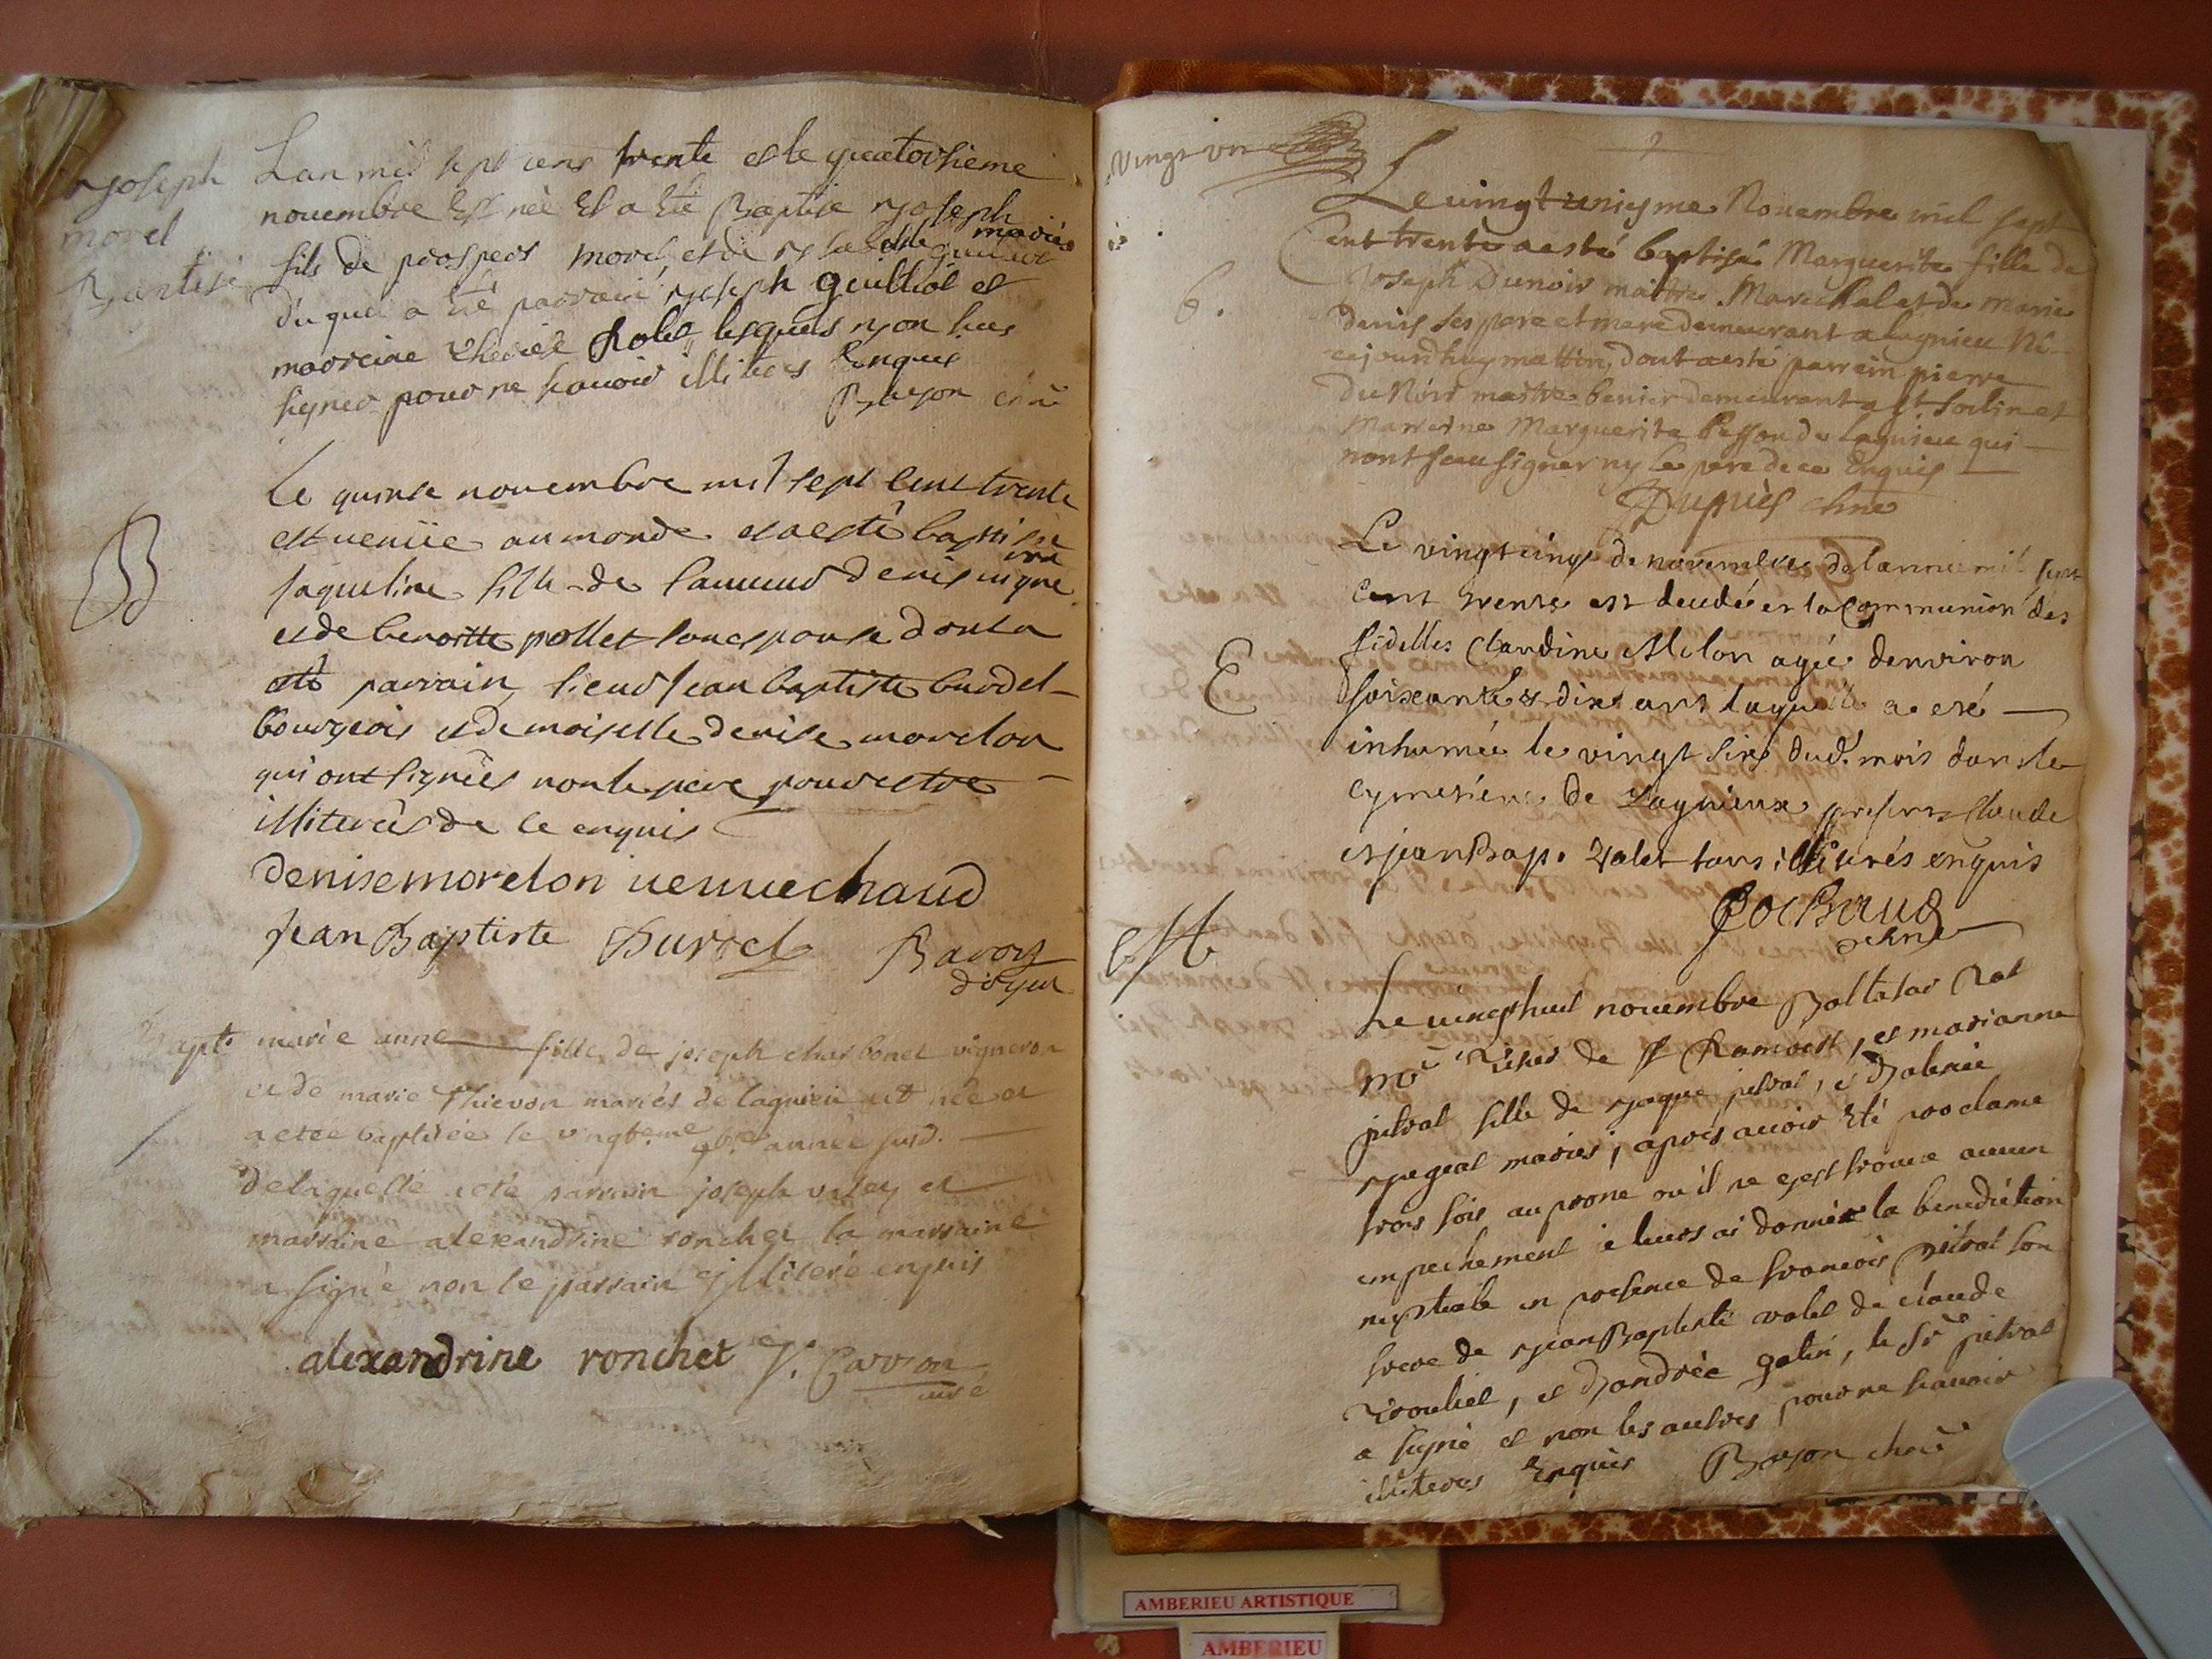 Joseph
morel
Baptisé
Lan mil sept cens trente et le quatorsieme
novembre Est née Et a Eté Baptise Joseph
fils de prospers morel et de mariés
duquel a été parrain Joseph guilliot et
marreine therese Rolet lesquels n'ont sceu
signer pour ne scavoir illiteres Enquis
Bayon chne
B
Le quinse novembre mil sept Cent trente
est venüe au monde et a estè baptisée
Jaqueline fille de Laurend denis vigneron
et de benoitte pollet son espouse dont a
été parrain sieur Jean baptiste burdel
bourgeois et demoiselle denise morelon
qui ont signées non le pere pour estre
illiterés de ce enquis
denise morelon veuve chaud
Jean Baptiste Burdel Bavoz
doyen
Bapt. marie anne fille de joseph charbonet vigneron
et de marie Thievon mariés de lagnieu est née et
a etée baptisée le vingtieme 9bre année susd.
de laquelle a ete parrain joseph et
marraine alexandrine ronchet la marraine
a signé non le parrain illiteré enquis
alexandrine ronchet J. Carron
curé
Vingt un
Le vingt uniesme Novembre mil sept
Cent trente a esté baptisé Marguerite fille de
Joseph Dunoir maitre Marechal et de Marie
denis ses pere et mere demeurant a lagnieu né
aujourdhuy mattin, dont a esté parrein pierre
du Noir maitre demeurant a St Sorlin et
Marreine Marguerite de lagnieu qui
nont sceu signer ny le pere de ce Enquis
Dupuès chne
E
Le vingt cinq de novembre de lannée mil sept
Cent trente est decedée en la Communion des
fidelles Claudine Melon agée denviron
soixante & dix ans laquelle a eté
inhumée le vingt sixe dud. mois dans le
cymetiere de Lagnieux presens Claude
et jean Bap. Valet tous illiterés enquis
chne
M
Le vingt huit novembre Baltasar Rat
mre de St Rambert, et marianne
pitrat fille de Jaque pitrat, et
mariés; apres avoir Eté proclame
trois fois au prone ou il ne s'est trouve aucun
empechement je leurs ai donnée la benediction
nuptiale en presence de francois pitrat son
frere de Jean Baptiste valet de claude
et D'andrée gatin, le Sr pitrat
a signé et non les autres pour ne scavoir
illiteres Enquis Bayon chne
AMBERIEU ARTISTIQUE
AMBERIEU